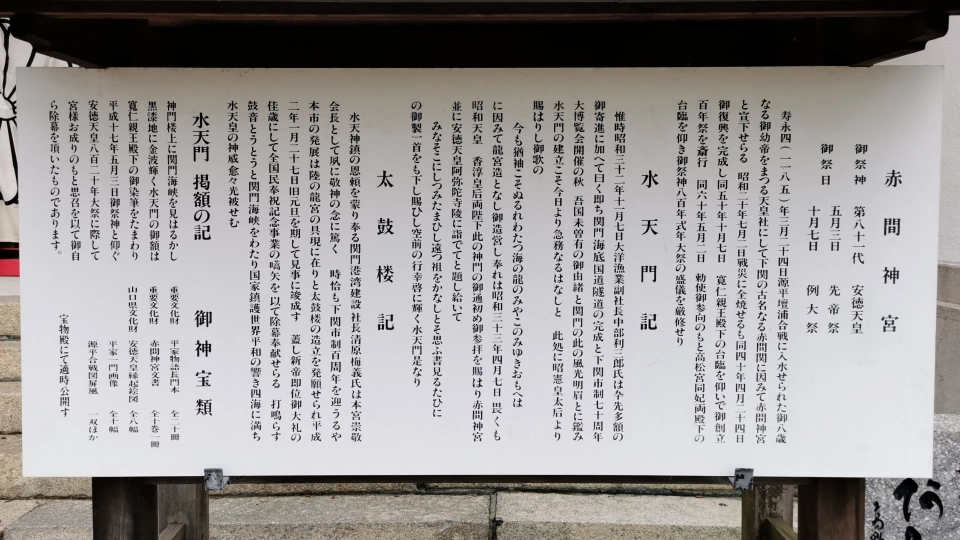 赤間神宮
御祭神　第八十一代　安徳天皇
御祭日　五月三日　先帝祭
十月七日　例大祭
寿永四（一一八五）年三月二十四日源平壇浦合戦に入水せられた御八歳
なる御幼帝をまつる天皇社にして下関の古名なる赤間関に因みて赤間神宮
と宣下せらる　昭和二十年七月二日戦災に全焼せるも同四十年四月二十四日
御復興を完成し同五十年十月七日　寛仁親王殿下の台臨を仰いで御創立
百年祭を斎行　同六十年五月二日　勅使御参向のもと高松宮同妃両殿下の
台臨を仰き御祭神八百年式年大祭の盛儀を厳修せり
水天門記
惟時昭和三十二年十一月七日大洋漁業副社長中部利三郎氏は率先多額の
御寄進に加へて曰く即ち関門海底国道隧道の完成と下関市制七十周年
大博覧会開催の秋　吾国未曽有の御由緒と関門の此の風光明眉とに鑑み
水天門の建立こそ今日より急務なるはなしと　此処に昭憲皇太后より
賜はりし御歌の
今も猶袖こそぬるれわたつ海の龍のみやこのみゆきおもへは
に因みて龍宮造となし御造営し奉れは昭和三十三年四月七日 畏くも
昭和天皇　香淳皇后両陛下此の神門の御通初め御参拝を賜はり赤間神宮
並に安徳天皇阿弥陀寺陵に詣でてと題し給いて
みなそこにしつみたまひし遠つ祖をかなしとそ思ふ書見るたひに
の御製一首をも下し賜ひし空前の行幸啓に輝く水天門是なり
太鼓楼記
水天神鎮の恩頼を蒙り奉る関門港湾建設 社長清原梅義氏は本宮崇敬
会長として夙に敬神の念に篤く　時恰も下関市制百周年を迎うるや
本市の発展は陸の龍宮の具現に在りと太鼓楼の造立を発願せられ平成
二年一月二十七日旧元旦を期して見事に竣成す　蓋し新帝即位御大礼の
佳歳にして全国民奉祝記念事業の嚆矢を以て除幕奉献せらる　打鳴らす
鼓音とうとうと関門海峡をわたり国家鎮護世界平和の響き四海に満ち
水天皇の神威愈々光被せむ
水天門　掲額の記
神門楼上に関門海峡を見はるかし
黒漆地に金波輝く水天門の御額は
寛仁親王殿下の御染筆をたまわり
平成十七年五月三日御祭神と仰ぐ
安徳天皇八百二十年大祭に際して
宮様お成りのもと思召を以て御自
ら除幕を頂いたものであります。
御神宝類
重要文化財　平家物語長門本　全二十冊
重要文化財　赤間神宮文書　全十巻一冊
山口県文化財　安徳天皇縁起絵図　全八幅
平家一門画像　全十幅
源平合戦図屏風　一双ほか
宝物殿にて適時公開す